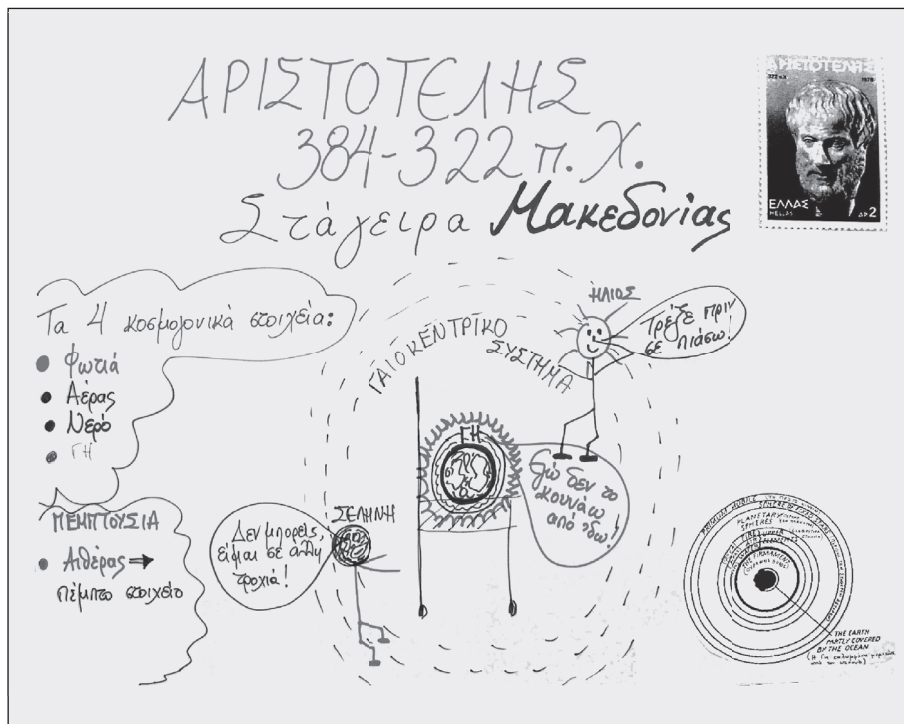 ΑΡΙΣΤΟΤΕΛΗΣ
384-322 π. Χ.
Στάγειρα Μακεδονίας
ΑΡΙΣΤΟΤΕΛΗΣ
1978
ΕΛΛΑΣ
HELLAS
ΔΡ 2
Τα 4 κοσμολογικά στοιχεία:
• Φωτιά
• Αέρας
• Νερό
• ΓΗ
ΠΕΜΠΤΟΥΣΙΑ
• Αιθέρας →
πέμπτο στοιχείο
ΓΑΙΟΚΕΝΤΡΙΚΟ
ΣΥΣΤΗΜΑ
ΗΛΙΟΣ
Τρέξε πριν
σε πιάσω!
ΓΗ
Εγώ δεν το
κουνάω
από 'δω!
ΣΕΛΗΝΗ
Δεν μπορείς,
είμαι σε άλλη
τροχιά!
PLANETARY
SPHERES
THE FIRMAMENT
THE EARTH
PARTLY COVERED
BY THE OCEAN